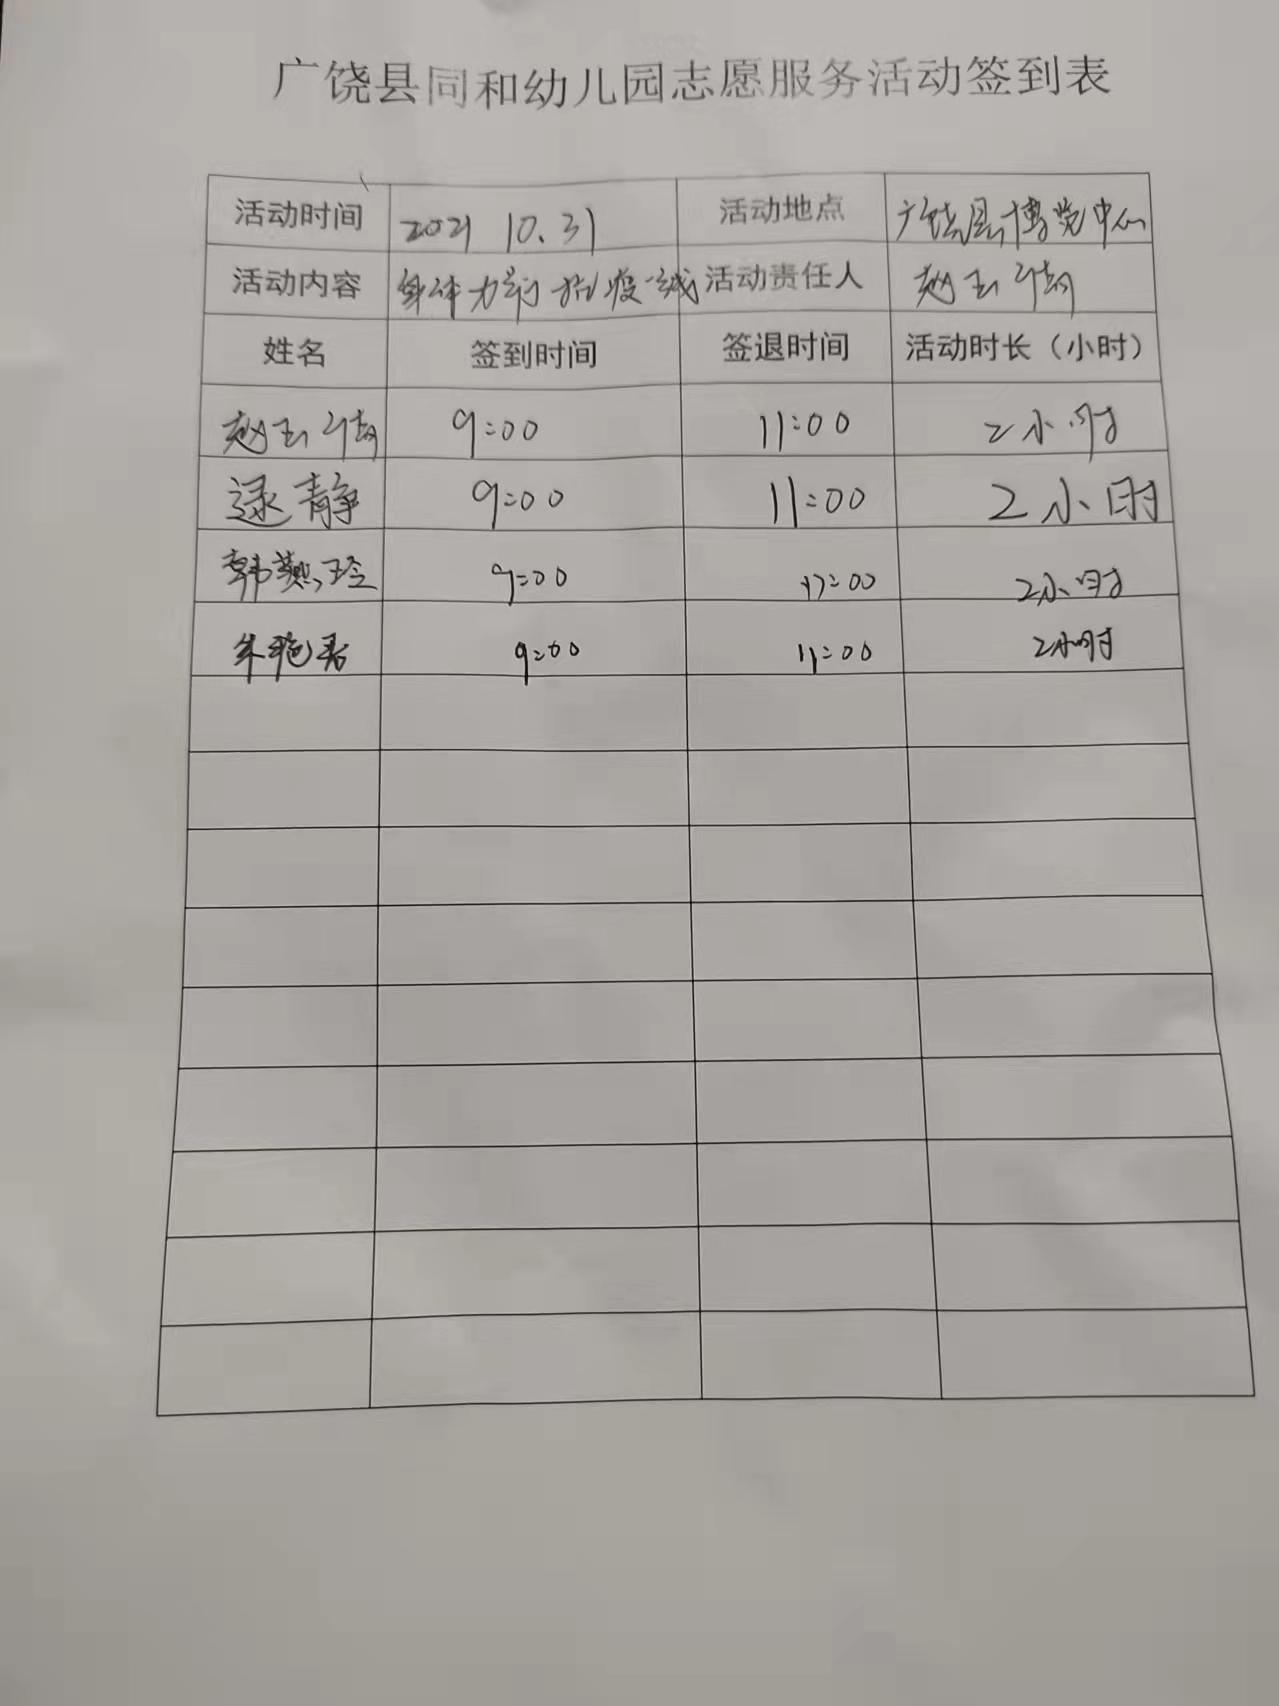 广饶县同和幼儿园志愿服务活动签到表
活动时间 2021 10.31 活动地点 广饶县博览中心
活动内容 身体力行抗疫一线 活动责任人 赵玉倩
姓名 签到时间 签退时间 活动时长（小时）
赵玉倩 9:00 11:00 2小时
逯静 9:00 11:00 2小时
韩燕玲 9:00 11:00 2小时
9:00 11:00 2小时